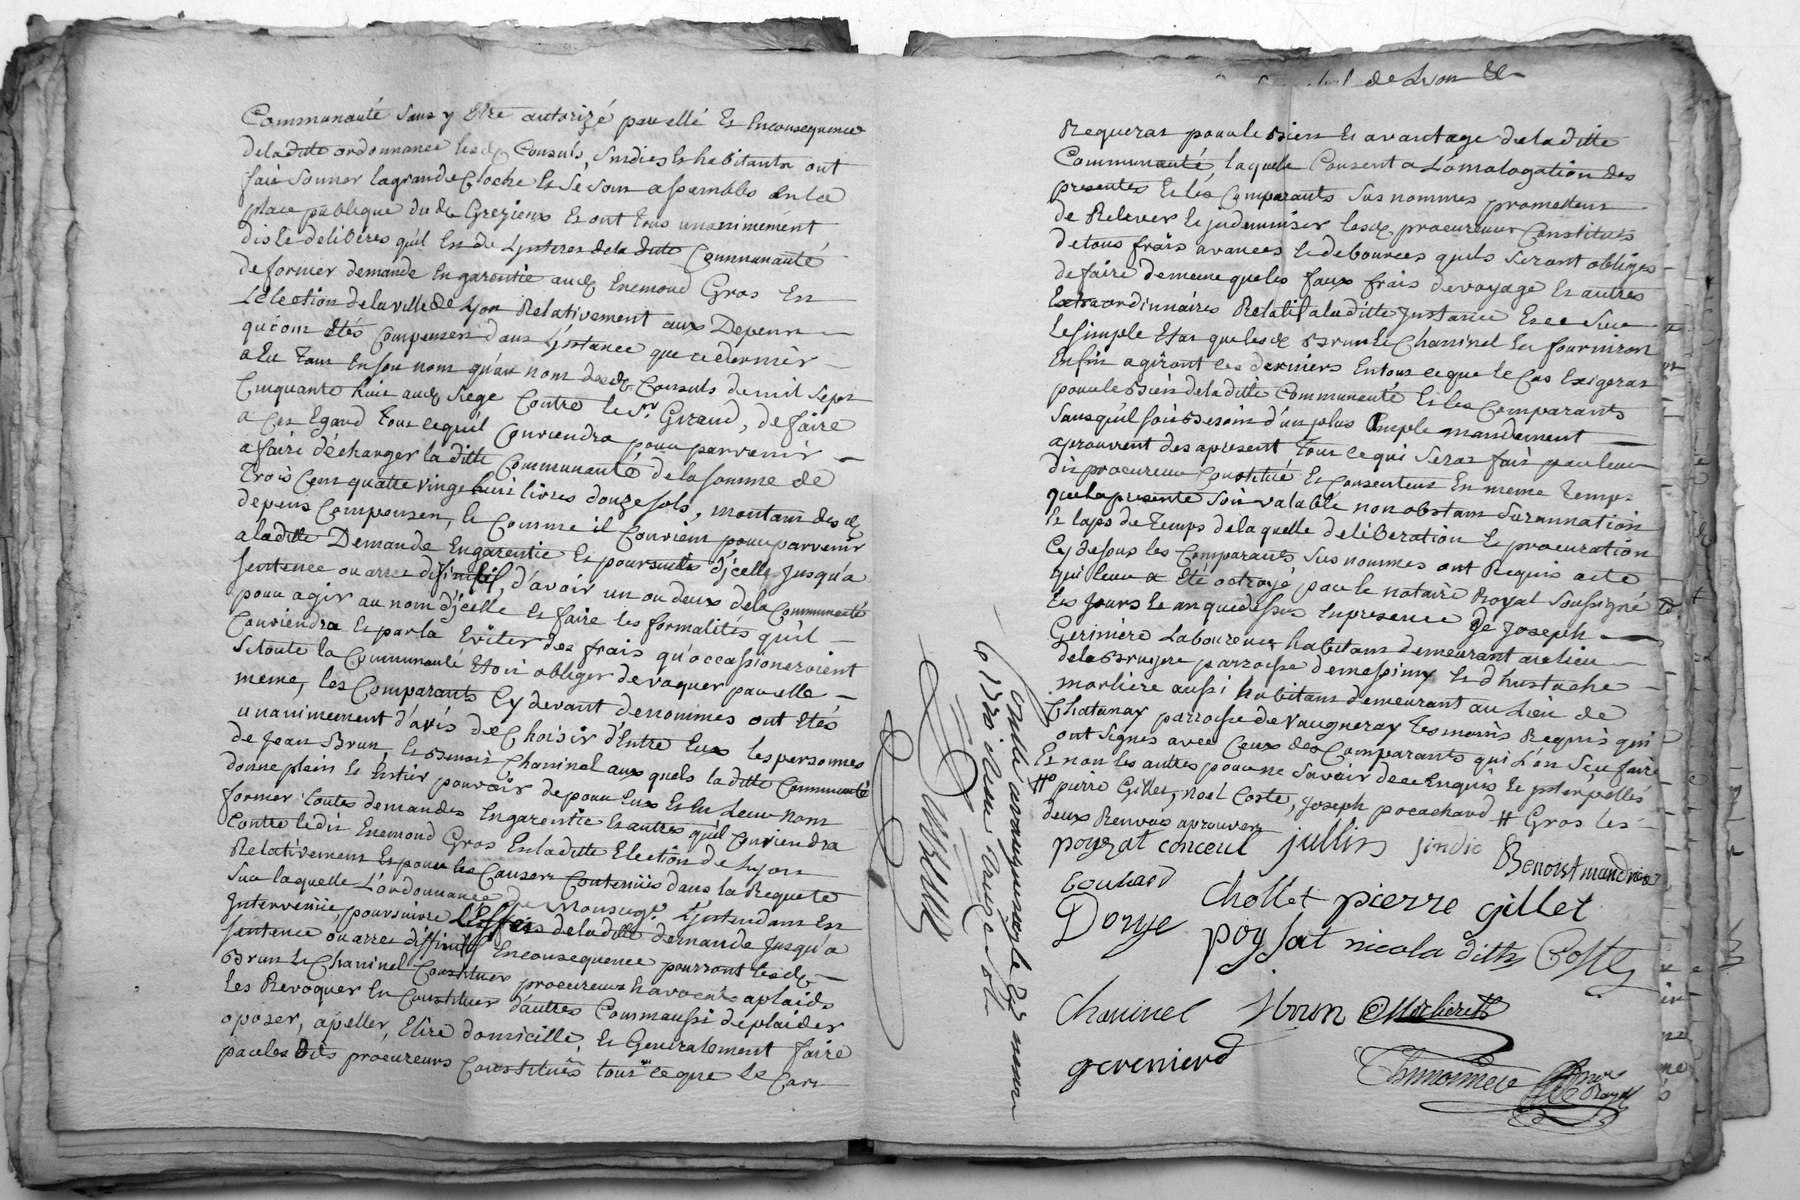 Communauté sans y Etre autorizé par elle Et Enconsequence
de laditte ordonnance lesd Consuls, Sindics Et habitants ont
fait Sonner la grande Cloche Et Se sont assembles En la
place publique dud Grezieux Et ont tous unanimement
dis Et deliberes qu'il Est de Lynteres de la ditte Communauté
de former demande En garentie aud Enemond Gros En
Lelection de la ville de Lyon Relativement aux Depens
qui ont Etés Compensés dans L'ynstance que ce dernier
a Eu Tant En son nom qu'au nom desd Consuls de mil Sept
Cinquante huit aud Siege Contre le Sr Giraud, de faire
a Cet Egard Tout ce quil Conviendra pour parvenir
a faire décharger la ditte Communauté de la somme de
Trois Cent quatre vingt huit livres douze sols, montant desd
depens Compensés, Et Comme il Convient pour parvenir
a laditte Demande En garentie Et poursuitte d'jcelle Jusqu'a
sentence ou arret difinitif, d'avoir un ou deux de la Communauté
pour agir au nom d'jcelle Et faire les formalités qu'il
Conviendra Et par la Eviter des frais qu'occassioneroient
Si toute la Communauté Etoit obliger de vaquer par elle
meme, les Comparants Cy devant denommés ont Etés
unanimement d'avis de Choisir d'Entre Eux les personnes
de Jean Brun, Et Benoit Chaninel aux quels la ditte Communauté
donne plein Et Entier pouvoir de pour Eux Et En Leur nom
former toutes demandes En garentie Et autres qu'il Conviendra
Contre ledit Enemond Gros En la ditte Election de Lyon
Relativement Et pour les Causes Contenües dans la Requete
Sur laquelle L'ordonnance de Monseigr L'yntendant Est
Intervenüe, poursuivre L'Effet de laditte demande Jusqu'a
sentence ou arret diffinitif Enconsequence pourront lesd
Brun Et Chaninel Constituer procureurs Et avocats a plaids
Les Revoquer En Constituer d'autres Comm aussi de plaider
oposer, apeller, Elire domicille, Et Generalement faire
par les Dits procureurs Constitués tout ce que le Cas
de Lyon &c
Requeras pour le Bien Et avantage de laditte
Communauté laquelle Consent a L'omologation des
presentes Et les Comparants Sus nommes promettent
de Relever Et jndemniser lesd procureurs Constitués
de tous frais avances Et debources quils Seront obliges
de faire de meme que les faux frais de voyage Et autres
Extraordinnaires Relatif a la ditte Jnstance Et ce Sur
Le simple Etat que lesd Brun Et Chaninel En fourniron
Enfin agiront ces derniers En tout ce que le Cas Exigeras
pour le Bien de la ditte Communauté Et les Comparants
Sans qu'il soit Besoin d'un plus Ample mandement
aprouvent des apresent Tout ce qui Seras fait par leur
dit procureur Constitué Et Consentent En meme Temps
que la presente Soit valable non obstant Surannation
Et laps de Temps de laquelle deliberation Et procuration
Cy dessus les Comparants Sus nommes ont Requis acte
qui leur a Eté octroyé par le notaire Royal Soussigné
les Jours Et an que dessus En presence De Joseph
Gerinière Laboureur habitant demeurant au lieu
de la Bruyere parroisse de messimy Et d'hustache
morliere aussi habitant demeurant au Lieu de
Chatanay parroisse de Vaugneray Temoins Requis qui
ont Signés avec Ceux des Comparants qui L'on Sçu faire
Et non les autres pour ne Savoir de ce Enquis Et ynterpellés
# pierre Gillet, noel Coste, Joseph pocachard # Gros les
deux Renvois aprouvés
poyzat conceul jullin sindic
Benoist mandrin
bouhard chollet pierre gillet
Donye poysat nicola Coste
Chaninel JBrun EMorlierett
gereniere
Thimonniere